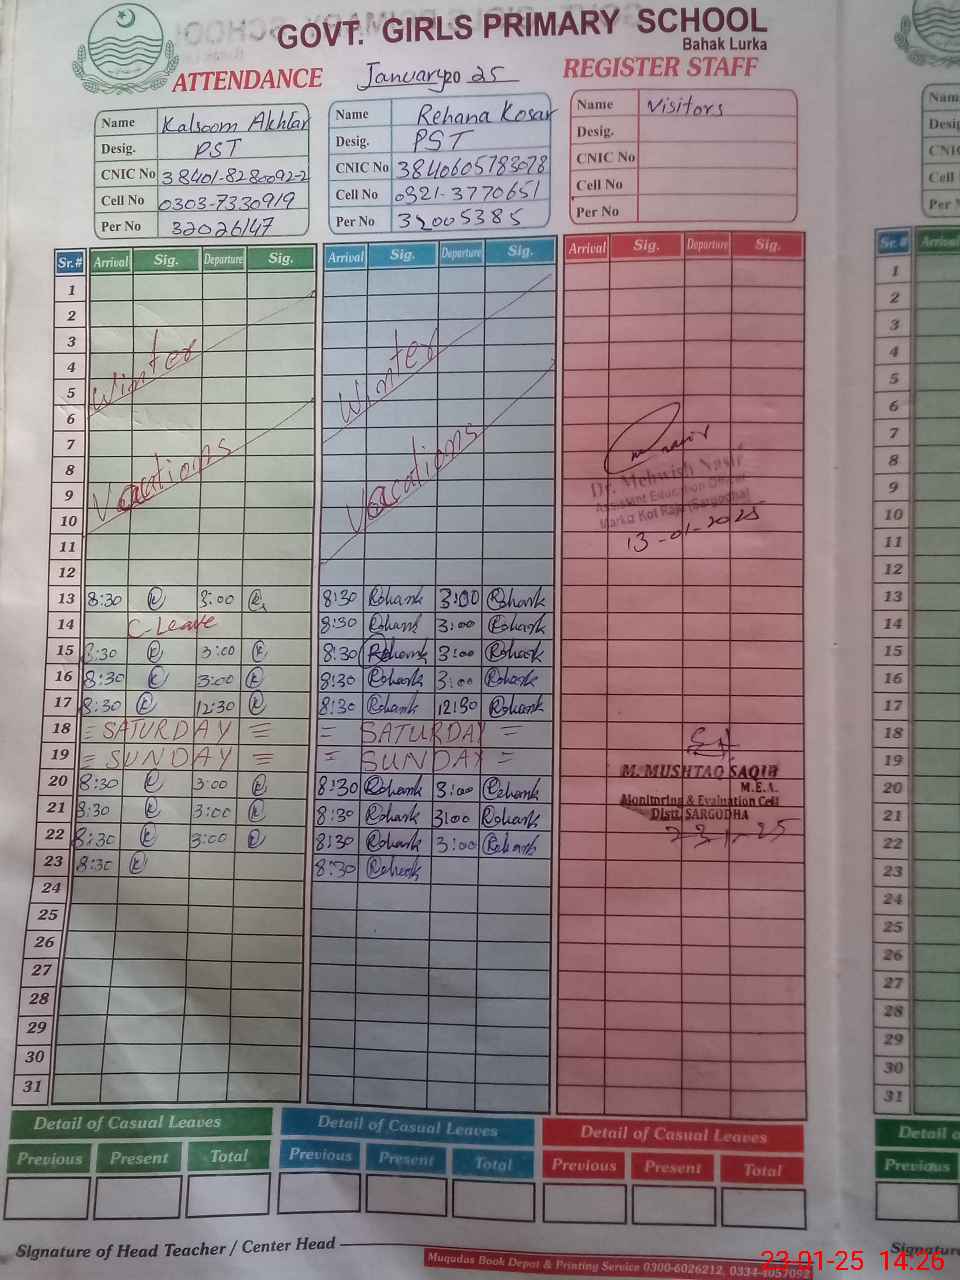 GOVT. GIRLS PRIMARY SCHOOL
Bahak Lurka
ATTENDANCE January 2025 REGISTER STAFF
Name Kalsoom Akhtar
Desig. PST
CNIC No 38401-8280092-2
Cell No 0303-7330919
Per No 32026147
Name Rehana Kosar
Desig. PST
CNIC No 3840605783078
Cell No 0321-3770651
Per No 32005385
Name Visitors
Desig.
CNIC No
Cell No
Per No
Sr.# Arrival Sig. Departure Sig. Arrival Sig. Departure Sig. Arrival Sig. Departure Sig.
1
2
3
4
5
6
7
8
9
10
11
12
Winter Vacations
Winter Vacations
13 8:30 3:00 8:30 3:00
14 C Leave 8:30 3:00
15 8:30 3:00 8:30 3:00
16 8:30 3:00 8:30 3:00
17 8:30 12:30 8:30 12:30
18 = SATURDAY = = SATURDAY =
19 = SUNDAY = = SUNDAY =
20 8:30 3:00 8:30 3:00
21 8:30 3:00 8:30 3:00
22 8:30 3:00 8:30 3:00
23 8:30 8:30
24
25
26
27
28
29
30
31
Dr. Mehwish Nasir
Assistant Education Officer
Markaz Kot Raja (Sargodha)
13-01-2025
M. MUSHTAQ SAQIB
M.E.A.
Monitoring & Evaluation Cell
Distt. SARGODHA
23-1-25
Detail of Casual Leaves Detail of Casual Leaves Detail of Casual Leaves
Previous Present Total Previous Present Total Previous Present Total
Signature of Head Teacher / Center Head
Muqadas Book Depot & Printing Service 0300-6026212, 0334-4057092
23-01-25 14:26
Sr.# Arrival
1
2
3
4
5
6
7
8
9
10
11
12
13
14
15
16
17
18
19
20
21
22
23
24
25
26
27
28
29
30
31
Previous